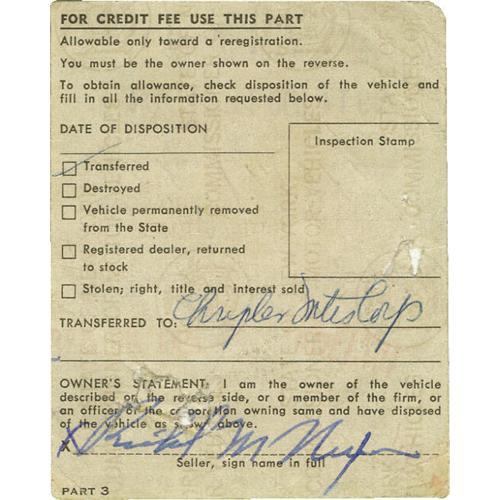 FOR CREDIT FEE USE THIS PART
Allowable only toward a reregistration.
You must be the owner shown on the reverse.
To obtain allowance, check disposition of the vehicle and
fill in all the information requested below.
DATE OF DISPOSITION
Inspection Stamp
Transferred
Destroyed
Vehicle permanently removed
from the State
Registered dealer, returned
to stock
Stolen; right, title and interest sold
TRANSFERRED TO: Corp
OWNER'S STATEMENT: I am the owner of the vehicle
described on the reverse side, or a member of the firm, or
an officer of the corporation owning same and have disposed
of the vehicle as shown above.
X M
Seller, sign name in full
PART 3